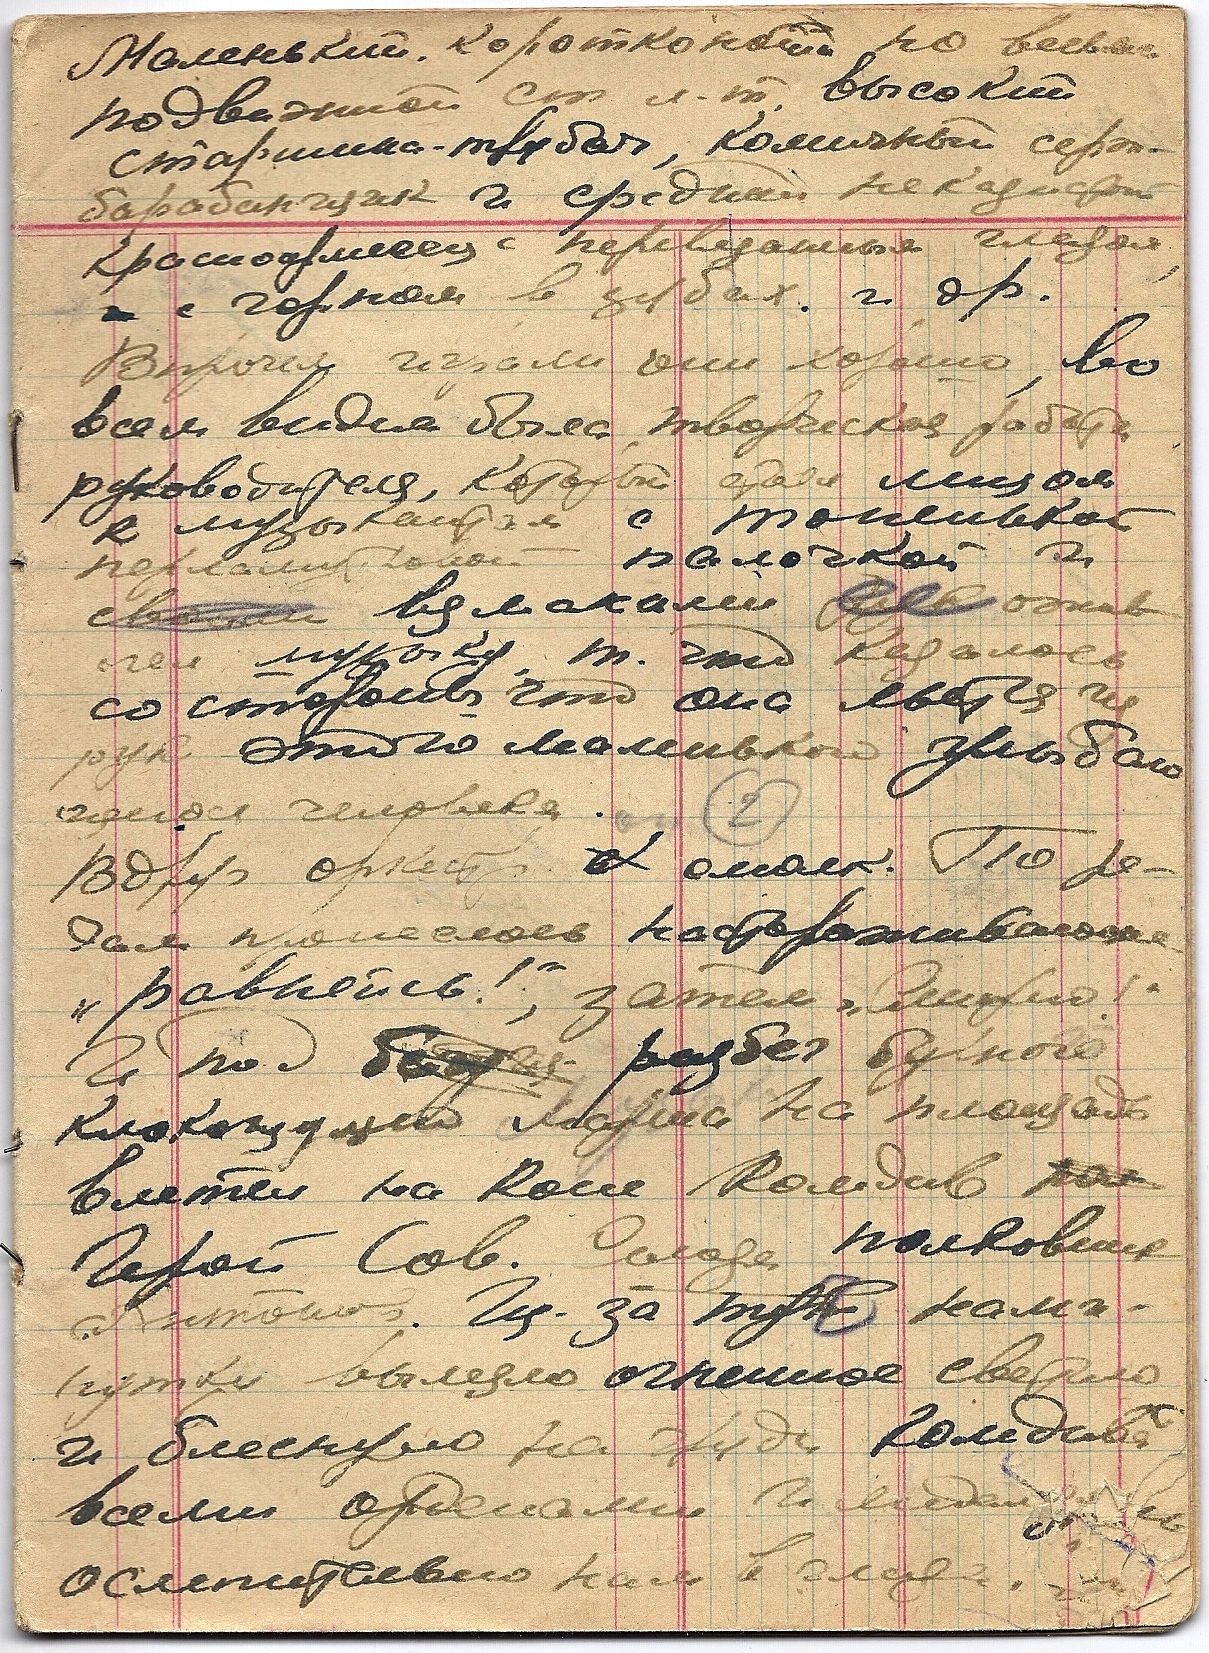 Маленький, коротконогий но весьма
подвижной ст л-т, высокий
старшина-трубач, комичный серж.-
барабанщик и средний неказистый
красноармеец с перевязанным глазом,
и с горном в зубах. и др.
Впрочем играли они хорошо, во
всем видна была творческая работа
руководителя, который стоял лицом
к музыкантам с тоненькой
перламутровой палочкой и
взмахами ожив
лял музыку, т. что казалось
со стороны что она льется из
рук этого маленького улыбаю
щегося человека.
2
Вдруг оркестр смолк. По ря-
дам пронеслось настораживающее
„равняйсь!", затем „Смирно!"
И под разбег буйного
клокочущего марша на площадь
влетел на коне Комдив
Герой Сов. Союза полковник
Антонов. Из-за туч на ми-
нутку вылезло огненное светило
и блеснуло на груди комдива
всеми орденами и
ослепительно нам в глаза.